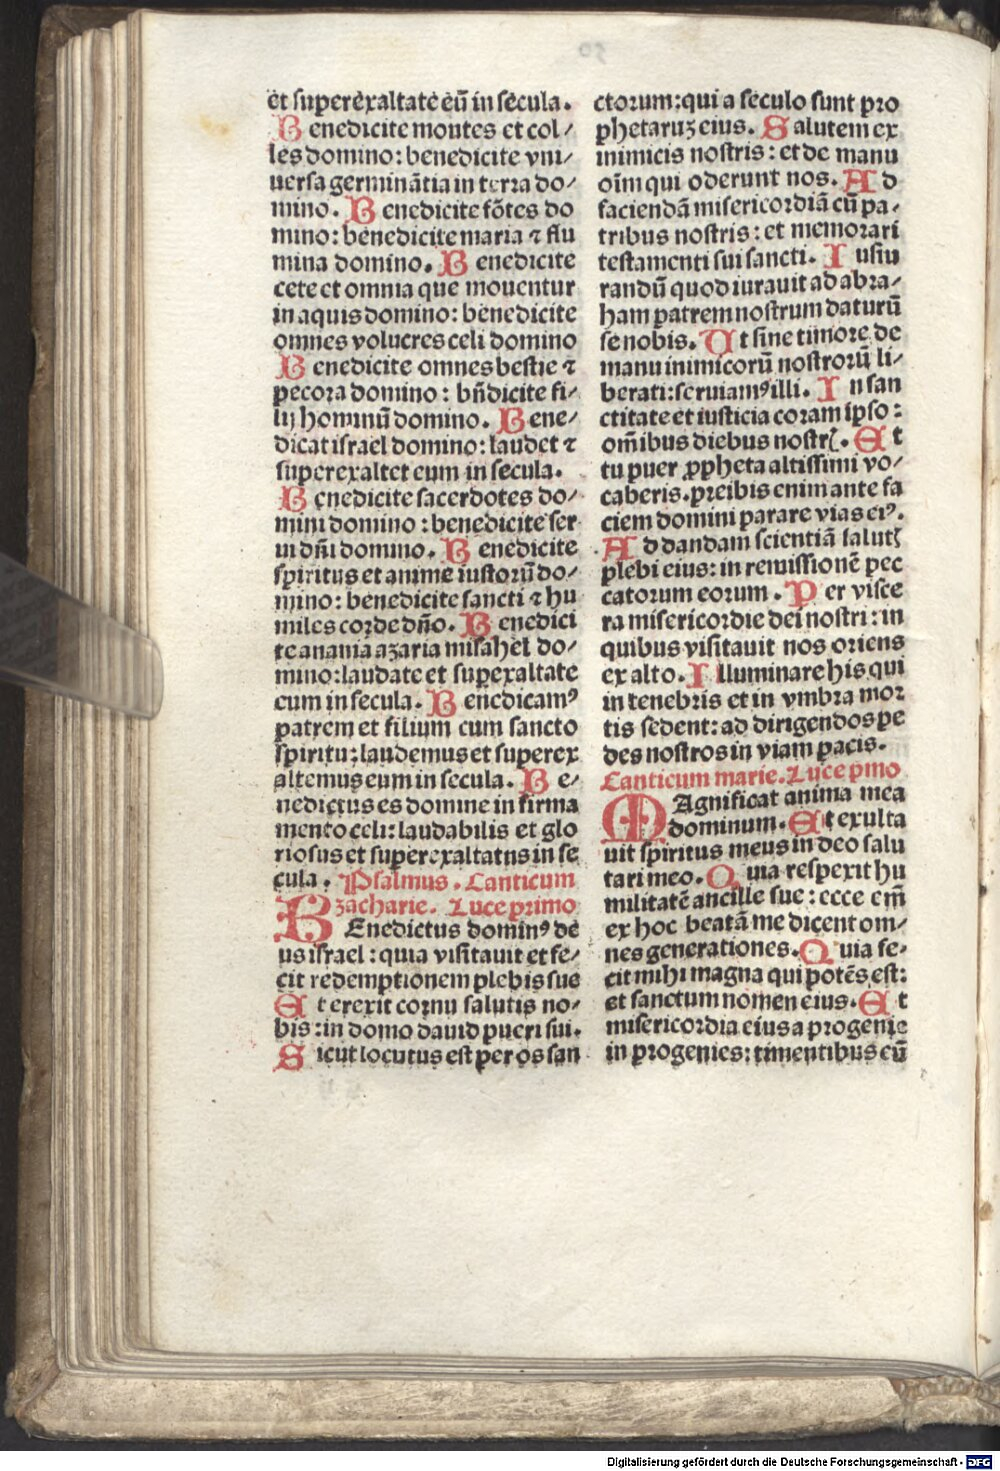 et superexaltate eū in secula.
Benedicite montes et col/
les domino: benedicite vni/
uersa germinātia in terra do/
mino. Benedicite fōtes do
mino: benedicite maria ⁊ flu
mina domino. Benedicite
cete et omnia que mouentur
in aquis domino: benedicite
omnes volucres celi domino
Benedicite omnes bestie ⁊
pecora domino: bn̄dicite fi-
lij hominū domino. Bene/
dicat israel domino: laudet ⁊
superexaltet eum in secula.
Benedicite sacerdotes do/
mini domino: benedicite ser
ui dn̄i domino. Benedicite
spiritus et anime iustorū do/
mino: benedicite sancti ⁊ hu
miles corde dn̄o. Benedici
te anania azaria misahel do/
mino: laudate et suꝑexaltate
eum in secula. Benedicamꝰ
patrem et filium cum sancto
spiritu: laudemus et superex
altemus eum in secula. Be/
nedictus es domine in firma
mento celi: laudabilis et glo
riosus et superexaltatus in se
cula. Psalmus. Canticum
zacharie. Luce primo
BEnedictus dominꝰ de
us israel: quia visitauit et fe/
cit redemptionem plebis sue
Et erexit cornu salutis no/
bis: in domo dauid pueri sui.
Sicut locutus est per os san
ctorum: qui a seculo sunt pro
phetaruꝫ eius. Salutem ex
inimicis nostris: et de manu
oīm qui oderunt nos. Ad
faciendā misericordiā cū pa/
tribus nostris: et memorari
testamenti sui sancti. Iusiu
randū quod iurauit ad abra/
ham patrem nostrum daturū
se nobis. Ut sine timore de
manu inimicorū nostrorū li/
berati: seruiamꝰ illi. In san
ctitate et iusticia coram ipso:
om̄ibus diebus nostrꝭ. Et
tu puer ꝓpheta altissimi vo/
caberis. preibis enim ante fa
ciem domini parare vias eiꝰ.
Ad dandam scientiā salutꝭ
plebi eius: in remissionē pec
catorum eorum. Per visce
ra misericordie dei nostri: in
quibus visitauit nos oriens
ex alto. Illuminare his qui
in tenebris et in vmbra mor
tis sedent: ad dirigendos pe
des nostros in viam pacis.
Canticum marie. Luce pmo
MAgnificat anima mea
dominum. Et exulta
uit spiritus meus in deo salu
tari meo. Quia respexit hu
militatē ancille sue: ecce em̄
ex hoc beatā me dicent om/
nes generationes. Quia fe-
cit mihi magna qui potēs est:
et sanctum nomen eius. Et
misericordia eius a progenie
in progenies: timentibus eū
Digitalisierung gefördert durch die Deutsche Forschungsgemeinschaft - DFG